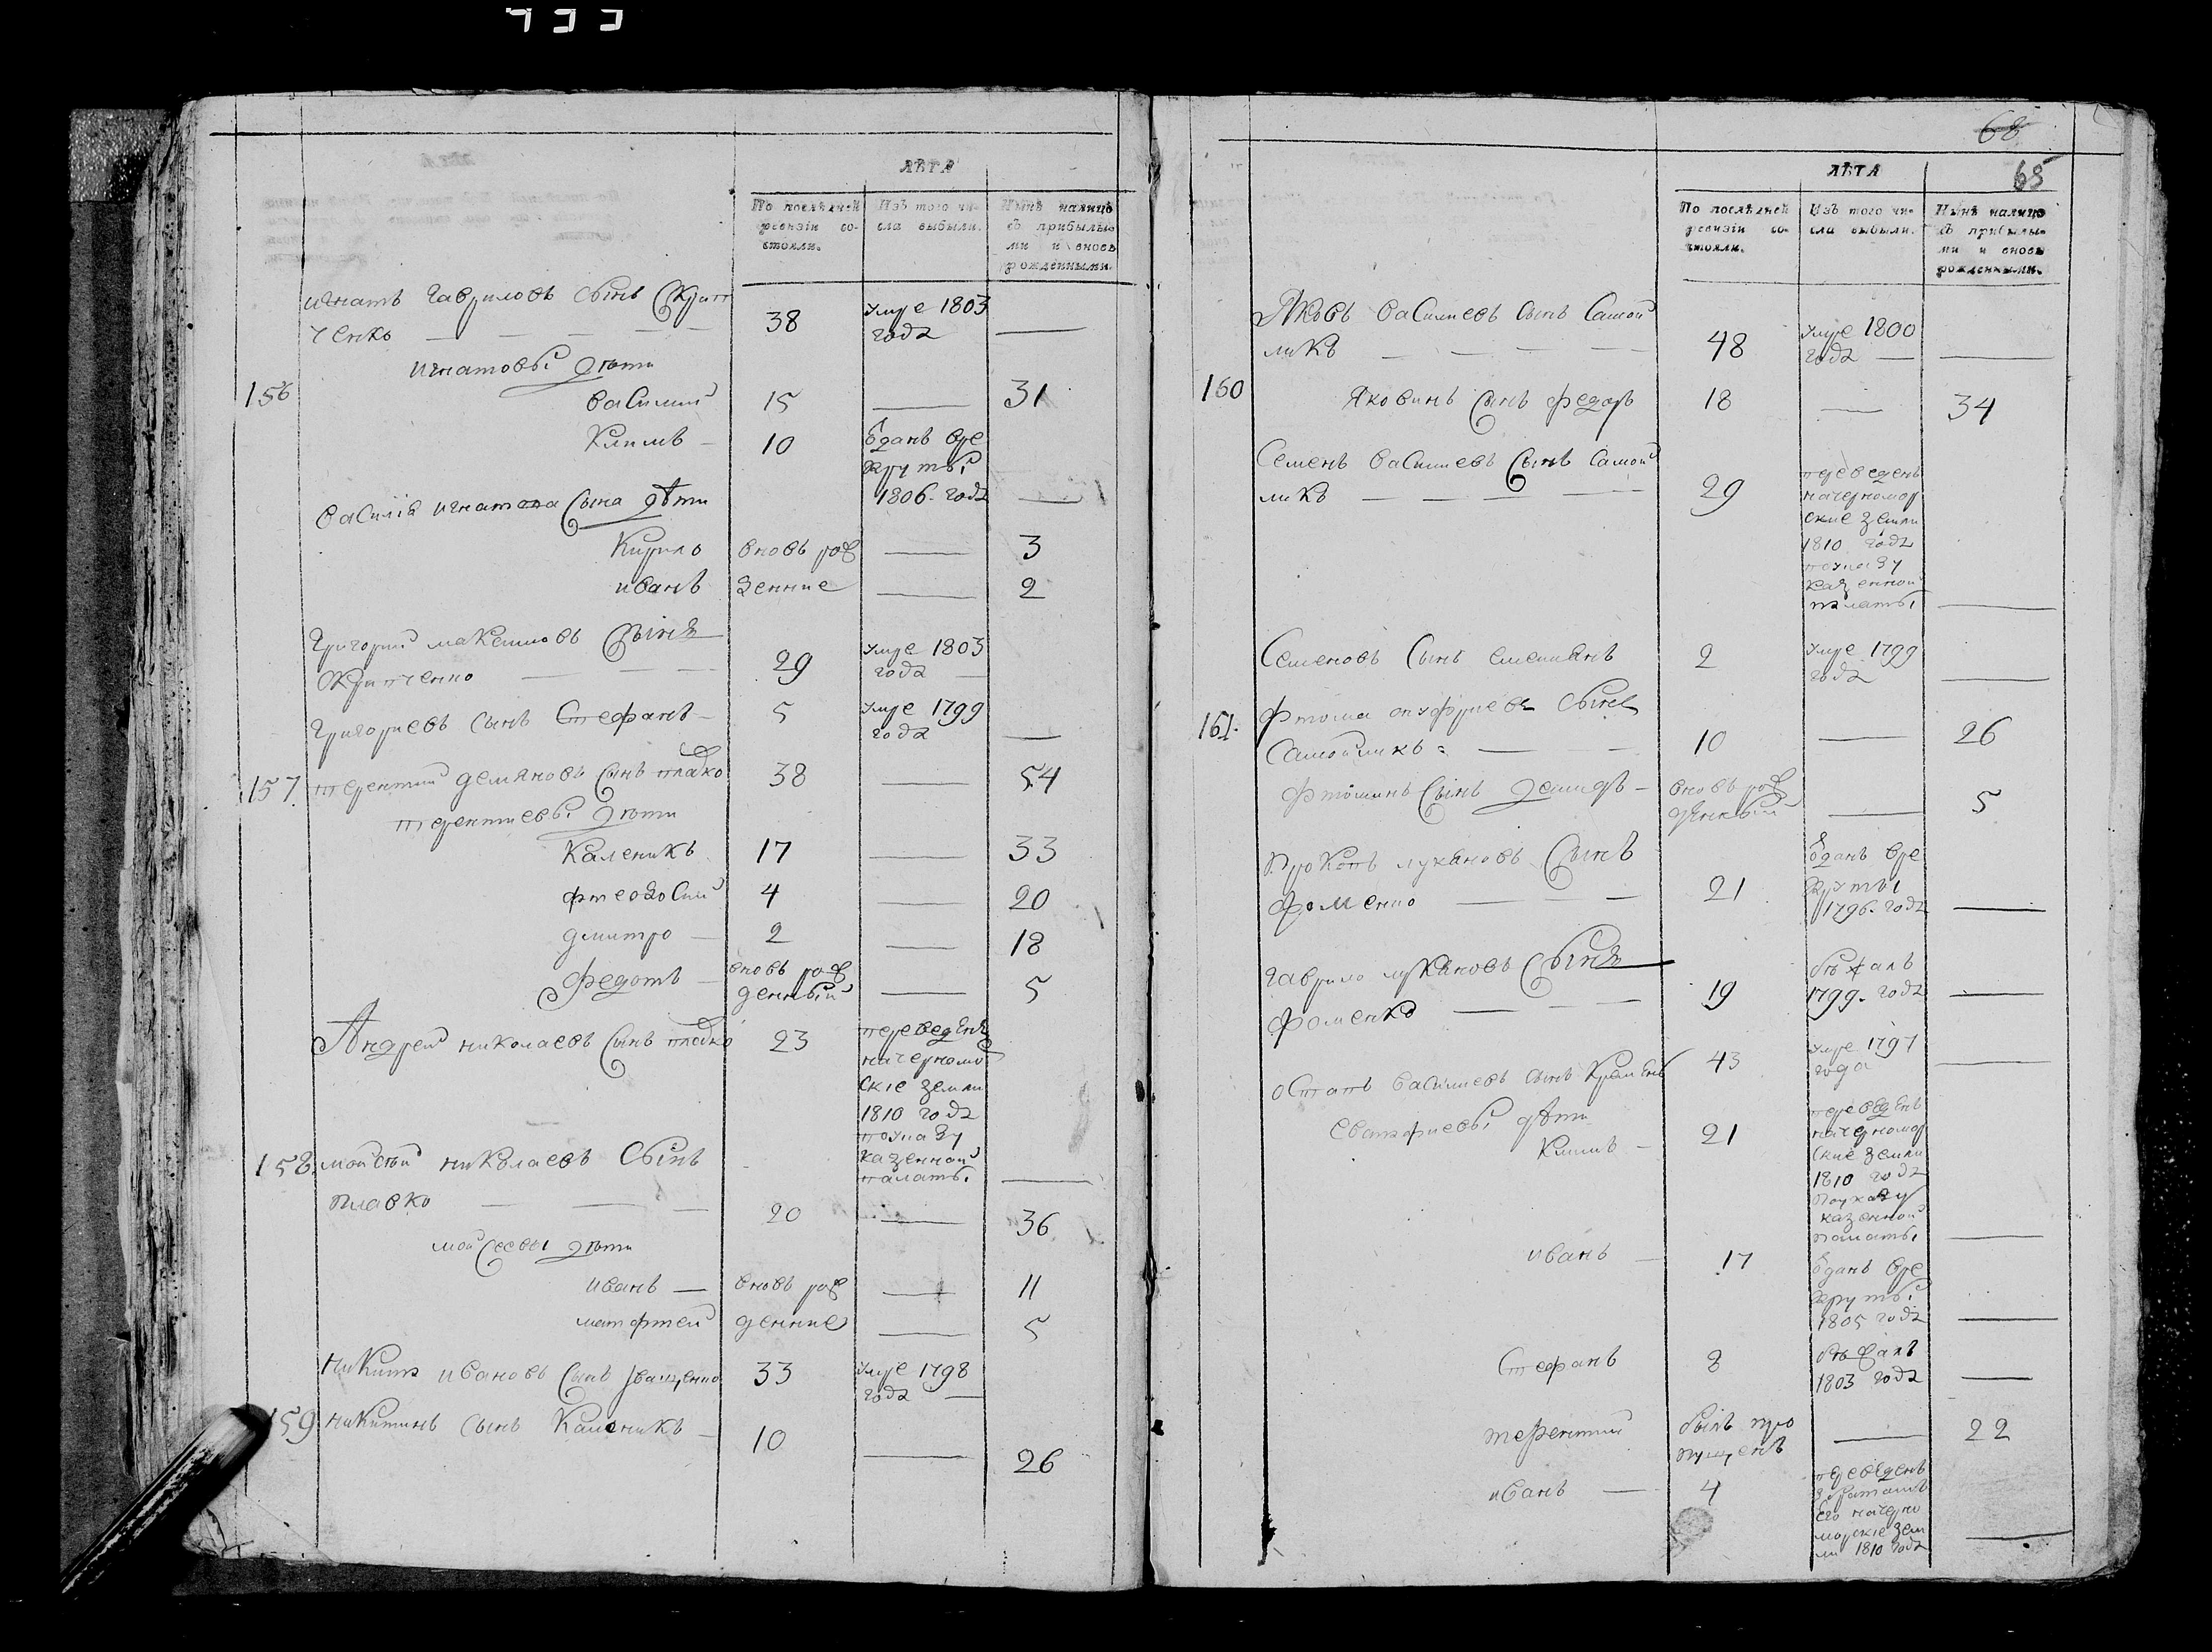 ЛѢТА
По послѣдней ревизіи со-
стояли.
Изъ того чи-
сла выбыли.
Нынѣ налицо
съ прибылы-
ми и вновь
рожденными.
игнатъ Гавриловъ сынъ Скрип
ченко 38 умре 1803
года
игнатовы дѣти
156 василий 15 31
Климъ 10 Ѿданъ вре
круты
1806. года
василія игнатова сына дѣти
Кирило вновь рож 3
иванъ денние 2
Григорий максимовъ сынъ
Скрипченко 29 умре 1803
года
Григориевъ сынъ Стефанъ 5 умре 1799
года
157 терентий демяновъ сынъ 38 54
терентиевы дѣти
Каленикъ 17 33
фтеодосий 4 20
дмитро 2 18
федотъ вновь рож
денный 5
Андрей николаевъ сынъ 23 переведенъ
начерномо
скіе земли
1810 года
поуказу
казенной
палаты
158 мойсей николаевъ сынъ
плавко 20 36
мойсеевы дѣти
иванъ вновь рож 11
матфтей денние 5
никита ивановъ сынъ иващенко 33 умре 1798
года
159 никитинъ сынъ Каленикъ 10 26
68
65
ЛѢТА
По послѣдней
ревизіи со-
стояли.
Изъ того чи-
сла выбыли.
Нынѣ налицо
съ прибылы-
ми и вновь
рожденными.
Яковъ василиевъ сынъ Самой
ликъ 48 умре 1800
года
160 яковинъ сынъ федоръ 18 34
Семенъ василиевъ сынъ Самой
ликъ 29 переведенъ
начерномор
ские земли
1810 года
поуказу
казенной
палаты
Семеновъ сынъ емелиянъ 2 умре 1799
года
161. фтома онуфриевъ сынъ
самойликъ 10 26
фтоминъ сынъ демидъ вновь рож
денный 5
Прокопъ лукяновъ сынъ
фоменко 21 Ѿданъ вре
круты
1796. года
гаврило лукяновъ сынъ
фоменко 19 бѣжалъ
1799. года
остапъ василиевъ сынъ 43 умре 1797
года
евстафиевы дѣти
Климъ 21 переведенъ
начерномор
ские земли
1810 года
поуказу
казенной
палаты
иванъ 17 Ѿданъ вре
круты
1805 года
Стефанъ 8 бѣжалъ
1803 года
терентий былъ про
пущенъ 22
иванъ 4 переведенъ
збратомъ
его начерно
морскіе зем
ли 1810 года